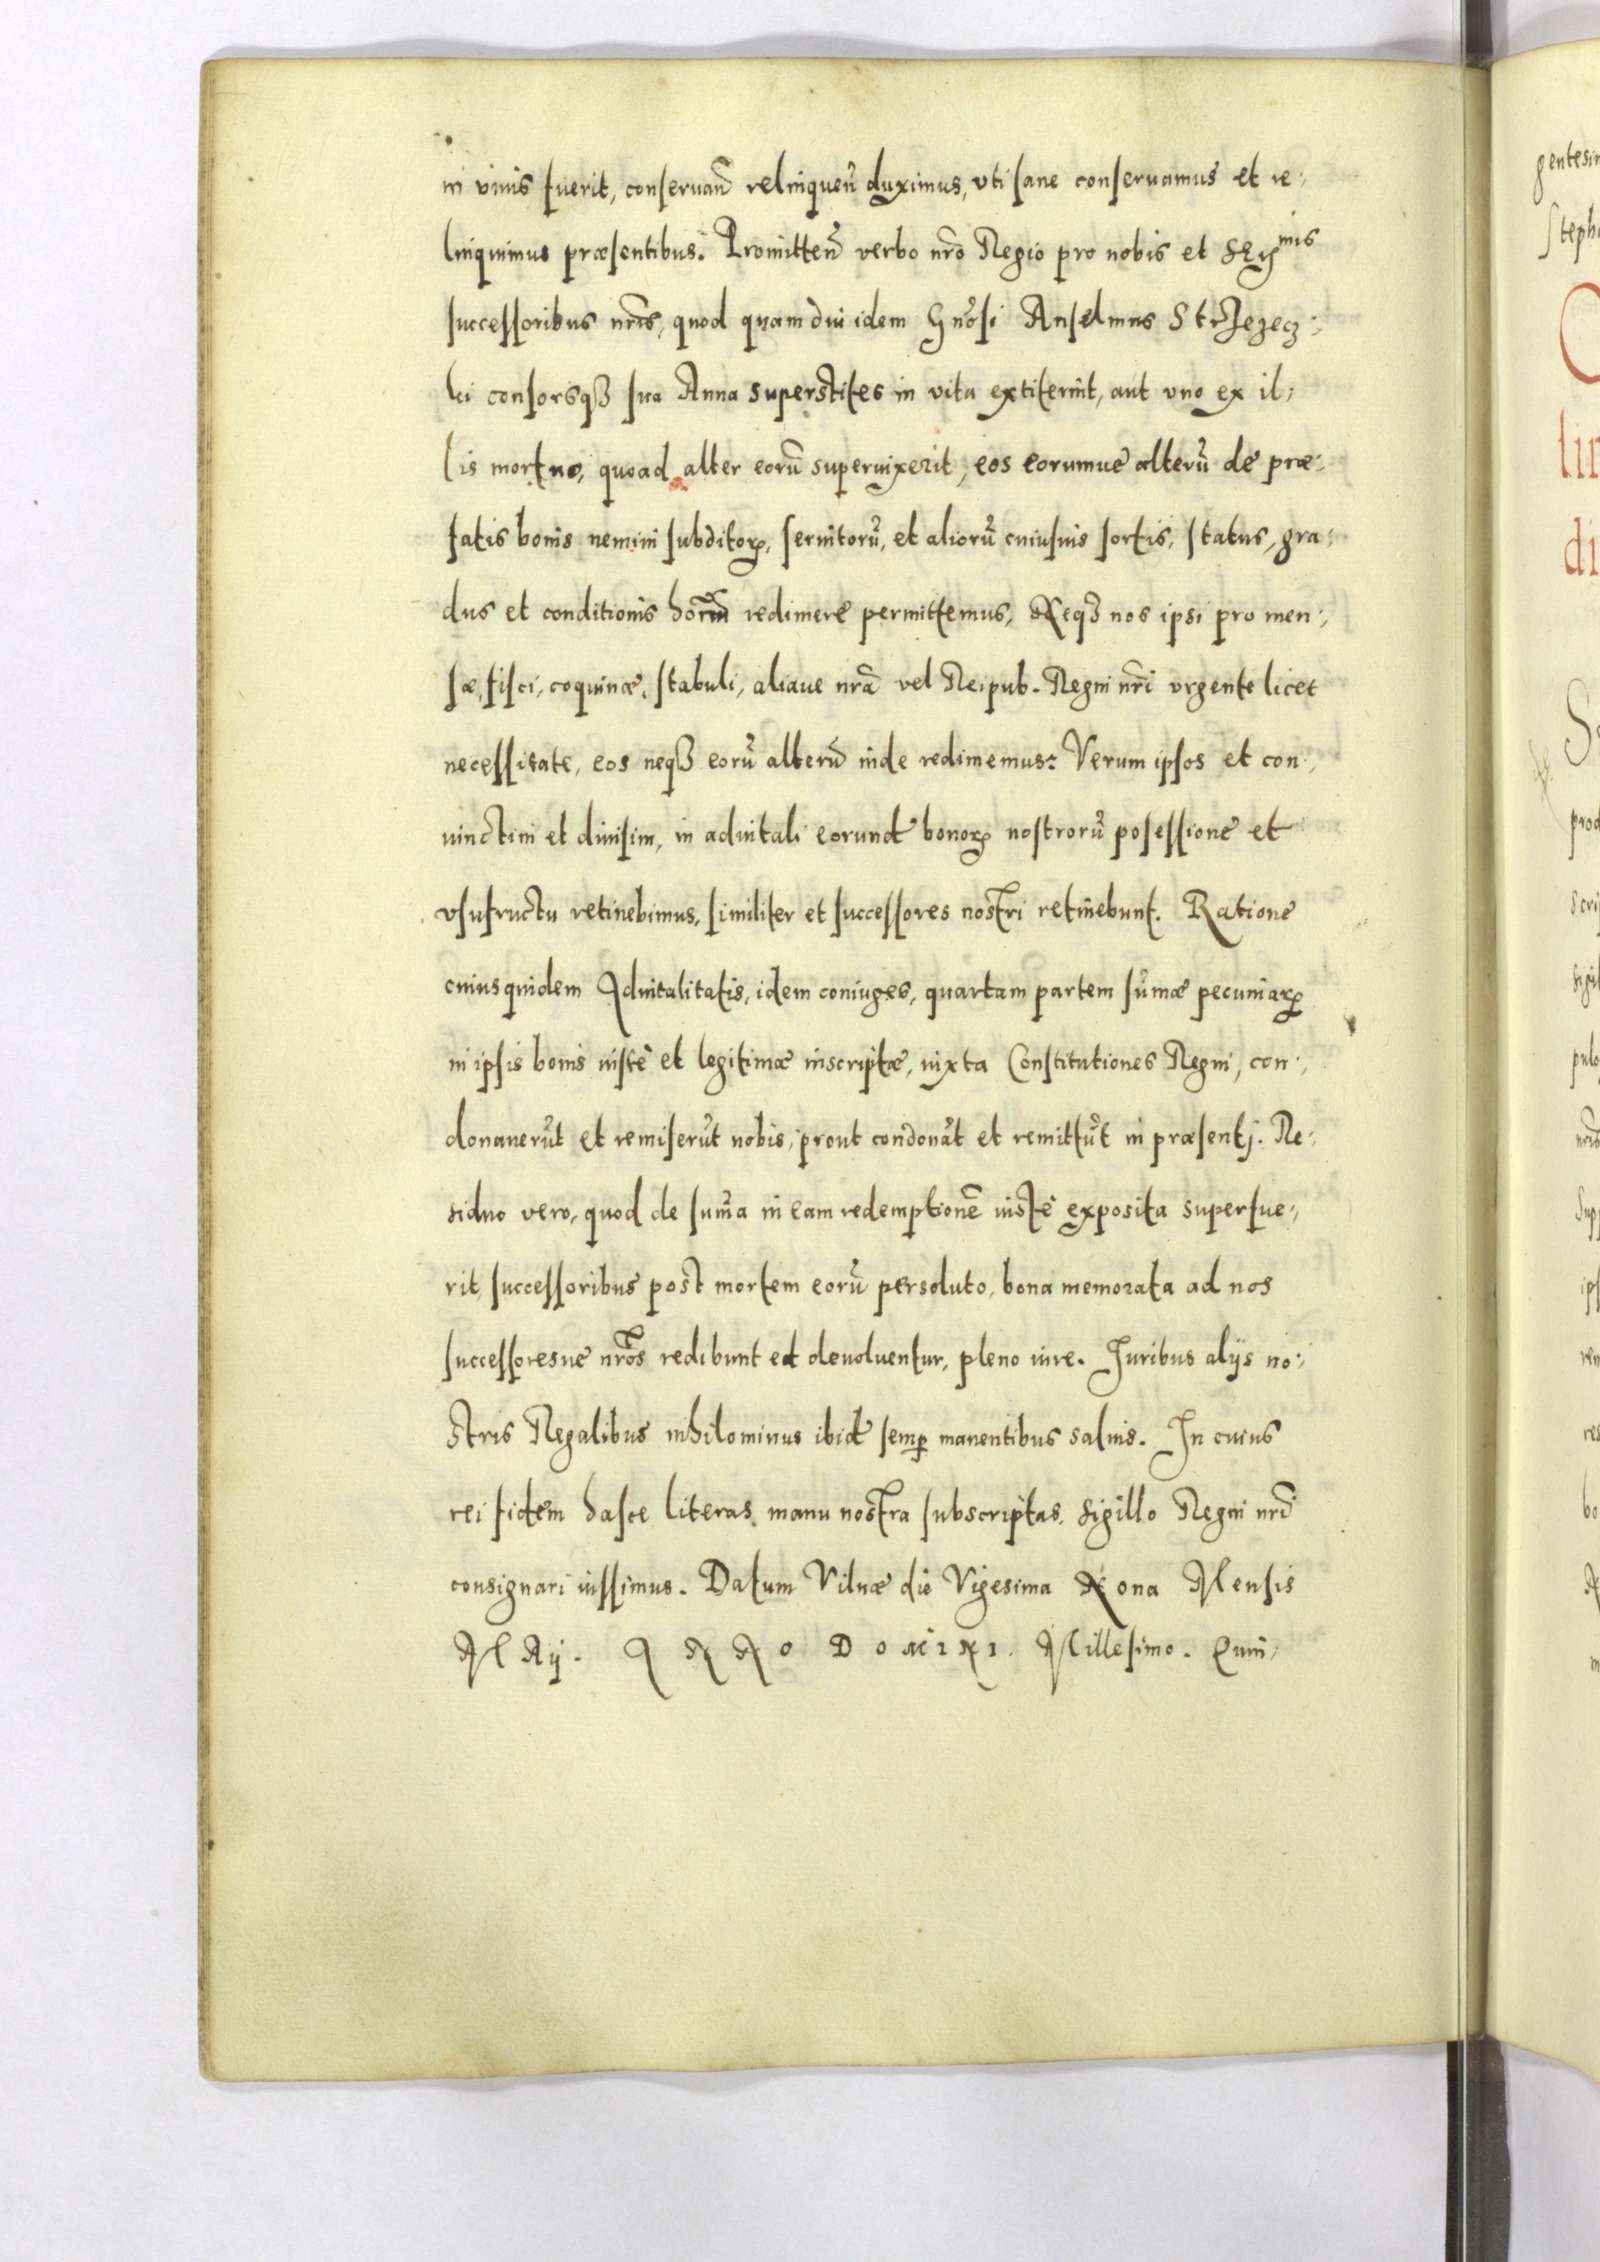 in viuis fuerit, conseruand̃ relinquend̃ duximus, vti sane conseruamus et re¬
linquimus præsentibus. Promitteñ verbo nr̃o Regio pro nobis et Ser͂mis
successoribus nr̃is, quod quamdiu idem Gñosi Anselmus Strzezecz¬
ki consorsqꝫ sua Anna superstites in vita extiterint, aut vno ex il¬
lis mortuo, quoad alter eorũ superuixerit, eos eorumue alterũ de præ¬
fatis bonis nemini subditoꝝ, seruitorũ, et aliorũ cuiusuis sortis, status, gra¬
dus et conditionis hom̃ redimere permittemus, Neqꝫ nos ipsi pro men¬
sæ, fisci, coquinæ, stabuli, aliaue nr̃a vel Reipub. Regni nr̃i vrgente licet
necessitate, eos neqꝫ eorũ alterũ inde redimemus: Verum ipsos et con¬
iunctim et diuisim, in aduitali eorund̃ bonoꝝ nostrorũ posessione et
vsufructu retinebimus, similiter et successores nostri retinebunt. Ratione
cuiusquidem Aduitalitatis, idem coniuges, quartam partem sum̃æ pecuniaꝝ
in ipsis bonis iuste et legitimæ inscriptæ, iuxta Constitutiones Regni, con¬
donauerũt et remiserũt nobis, prout condonãt et remittũt in præsentj. Re¬
siduo vero, quod de sum̃a in eam redemptionẽ iuste exposita superfue¬
rit, successoribus post mortem eorũ persoluto, bona memorata ad nos
successoresue nr̃os redibunt et deuoluentur, pleno iure. Juribus alijs no¬
stris Regalibus nihilominus ibid̃ semꝑ manentibus saluis. In cuius
rei fidem hasce literas manu nostra subscriptas, sigillo Regni nr̃i
consignari iussimus. Datum Vilnæ die Vigesima Nona Mensis
MAij. ANNO DOMINI. Millesimo. Quin¬